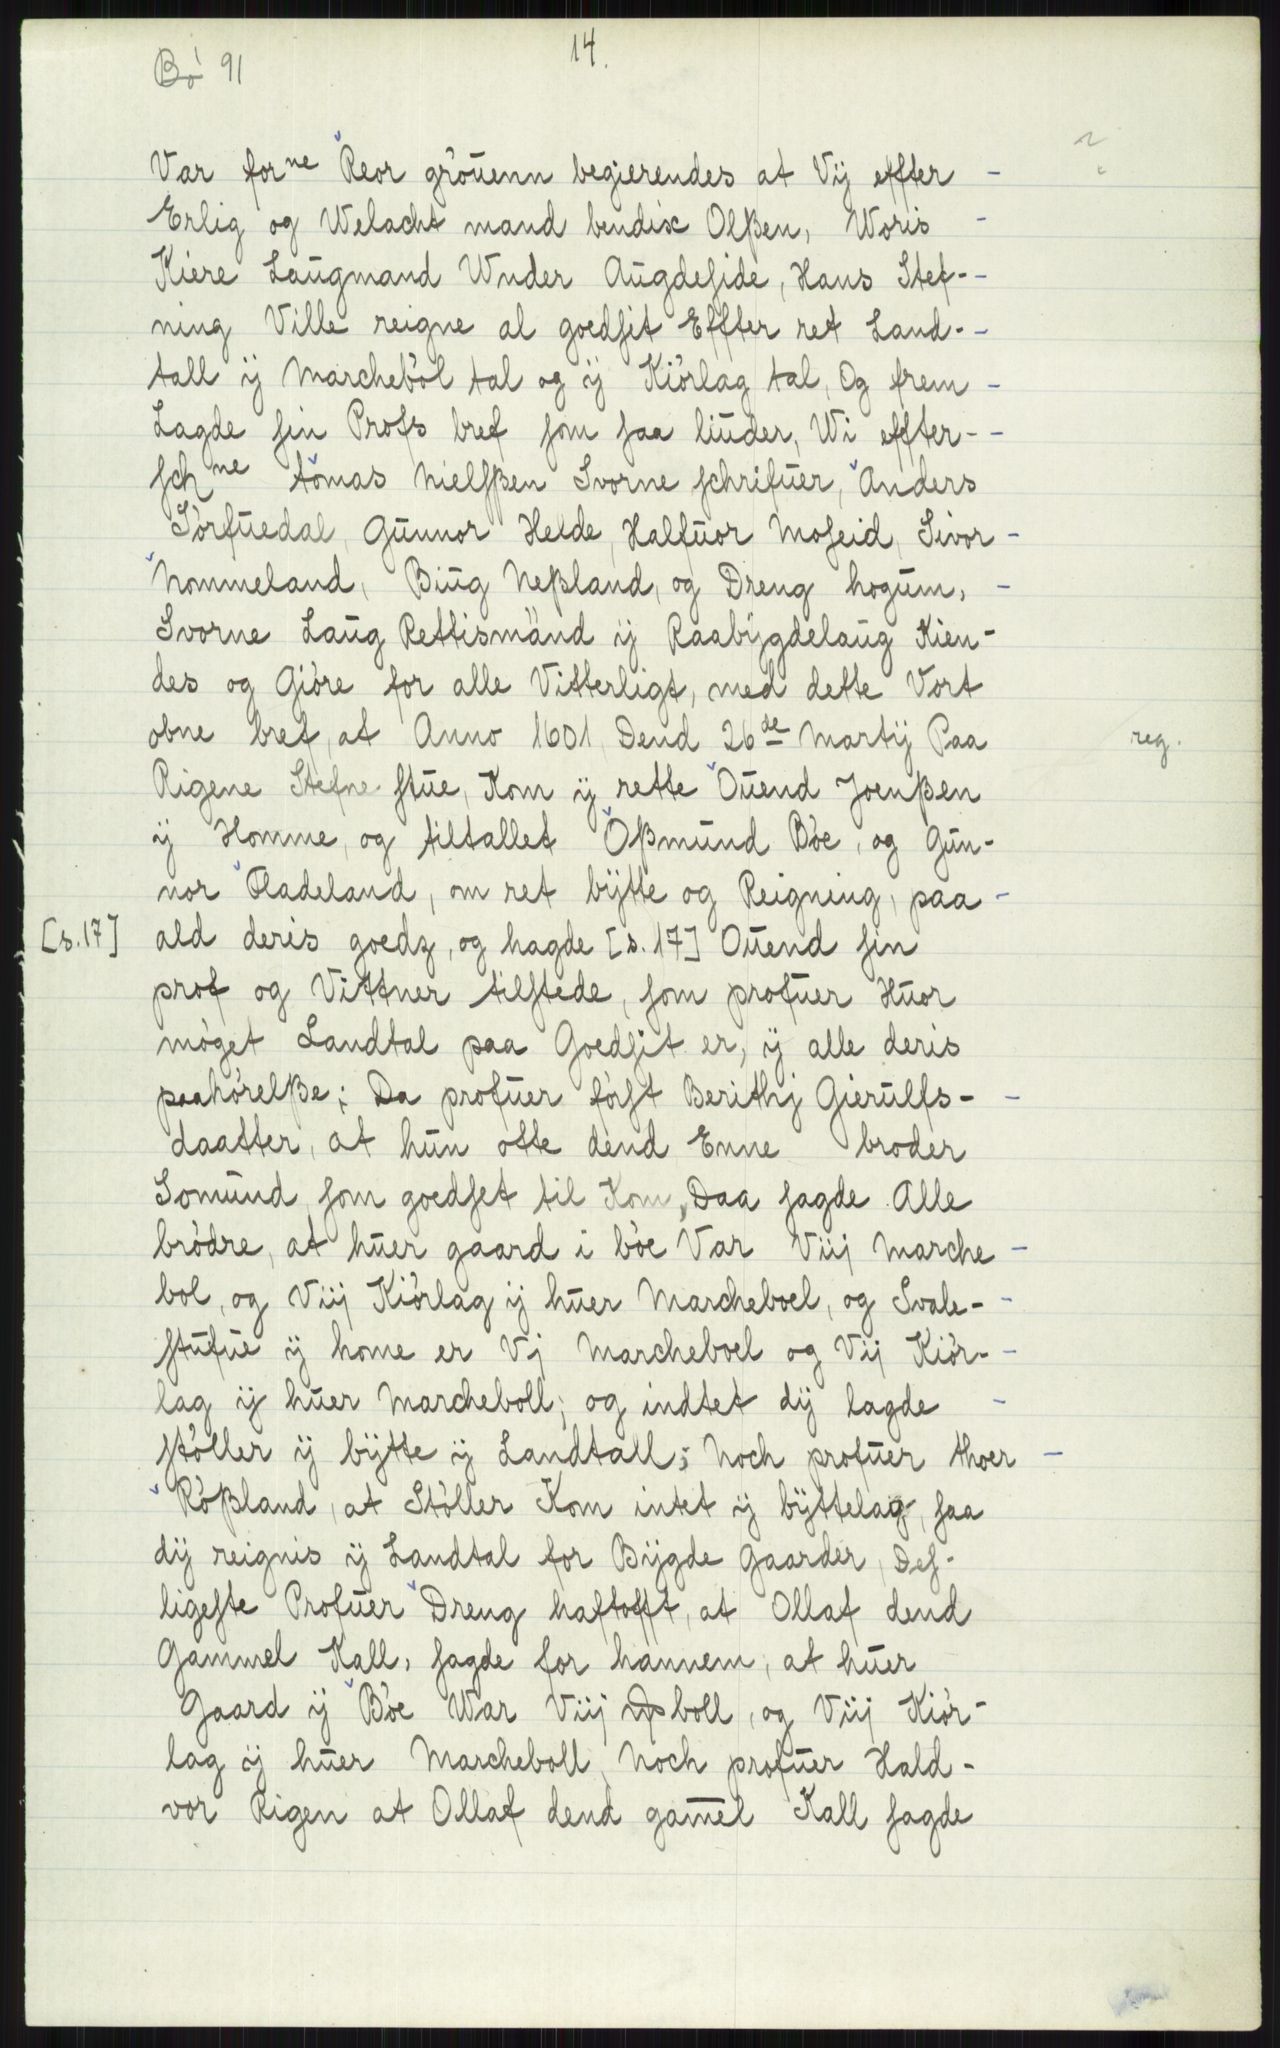 Bó 91
14.
Var forne Reor gróuenn begierendes at Vij effter -
Erlig og Welacht mand bendix Olßen, Woris -
Kiere Laugmand Wnder Augdeside, Hans Stef- -
ning Ville reigne al goedsit Effter ret Land- -
tall ij Marcheból tal og ij Kiórlag tal, Og frem -
Lagde sin Profs bref som saa liuder, Wi effter- -
schne tómas Nielsßen Svorne schrifuer, Anders
Sórfuedal, Gunnor Helde, Halfuor Moseid, Sivor -
Nommeland, Biug Neßland, og Dreng hogum, -
Svorne Laug Rettismänd ij Raabygdelaug Kien-
des og Gióre for alle Vitterligt, med dette Vort
obne bref, at Anno 1601, Dend 26de Martij Paa
reg.
Rigene Stefne stue, Kom ij rette Ouend Joenßen
ij Homme, og tiltallet Oßmund Bóe, og Gun-
nor Fladeland, om ret bÿtte og Reigning, paa -
[s.17] ald deris goedz, og hagde [s.17] Ouend sin
prof og Vittner tilstede, som profuer Huor
móget Landtal paa Goedsit er, ij alle deris
paahórelße; Da profuer fórst Berithj Gierulfs- -
daatter, at hun otte dend Enne broder
Somund, som goedset til Kom, Daa sagde Alle
bródre, at huer gaard i bóe Var Viij Marche -
bol, og Viij Kiórlag ij huer Marcheboel, og Svale- -
stufue ij home er Vj Marcheboel og Vij Kiór- -
lag ij huer Marcheboll; og indtet dij lagde -
stóller ij bÿtte ij Landtall; Noch profuer thoer -
Róßland, at Stóller Kom intet ij bÿttelag, saa
dij reignis ij Landtal for Bÿgde Gaarder, Des-
ligeste Profuer Dreng haftofft, at Ollaf dend
Gammel Kall, sagde for hannem, at huer
Gaard ij Bóe War Viij boll, og Viij Kiór-
lag ij huer Marcheboll, Noch profuer Hald-
vor Rigen at Ollaf dend gamel Kall sagde